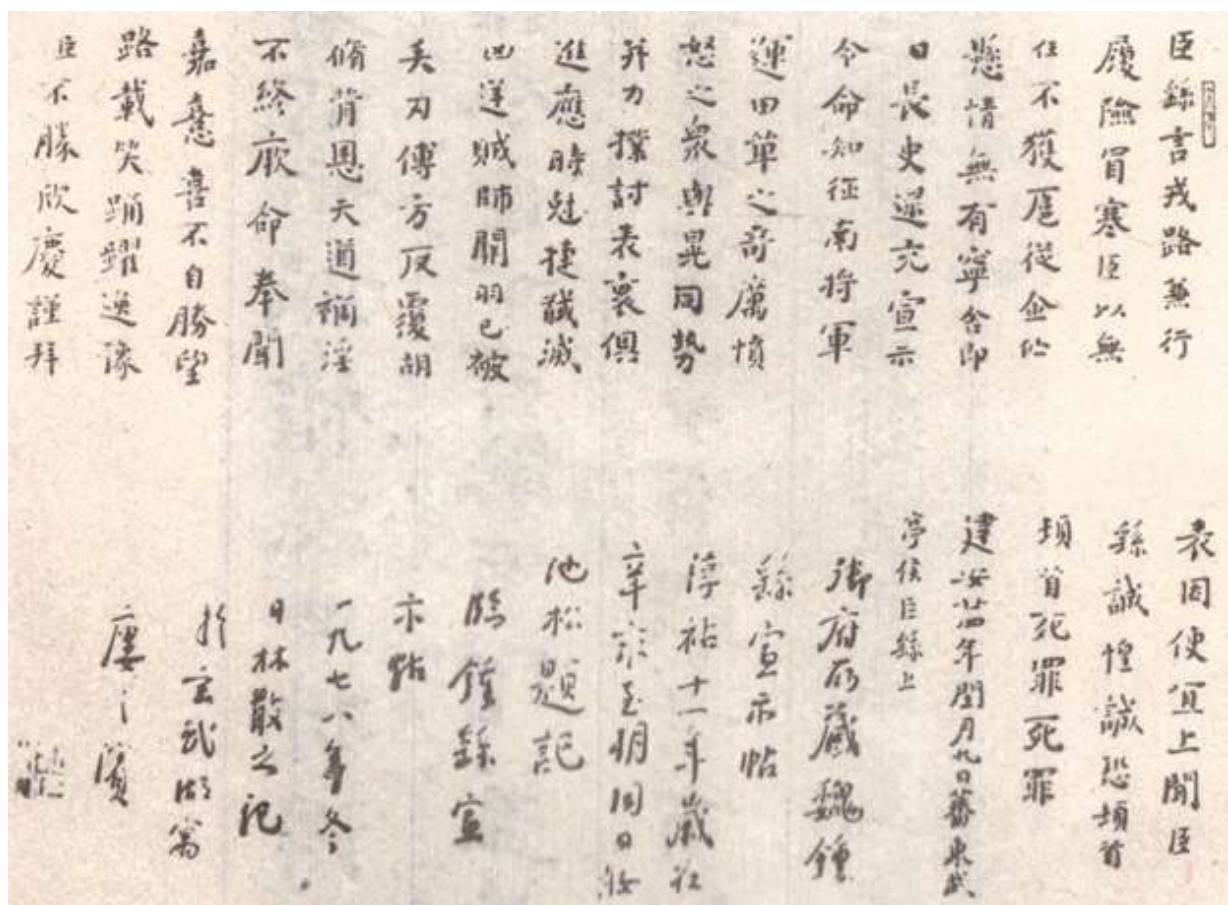 臣繇言戎路兼行
履險冒寒臣以無
任不獲扈從企佇
懸情無有寧舍即
日長史逯充宣示
令命知征南將軍
運田單之奇厲憤
怒之眾與晃同勢
并力撲討表裏俱
進應時尅捷馘滅
凶逆賊帥關羽已被
矢刃傅方反覆胡
脩背恩天道禍淫
不終厥命奉聞
嘉憙喜不自勝望
路載笑踊躍逸豫
臣不勝欣慶謹拜
表因便宜上聞臣
繇誠惶誠恐頓首
頓首死罪死罪
建安廿四年閏月九日蕃東武
亭侯臣繇上
御府所藏魏鍾
繇宣示帖
淳祐十一年歲在
辛亥至明同日
池松題記
臨鍾繇宣
示帖
一九七八年冬
日林散之記
於玄武湖寓
廔之濱